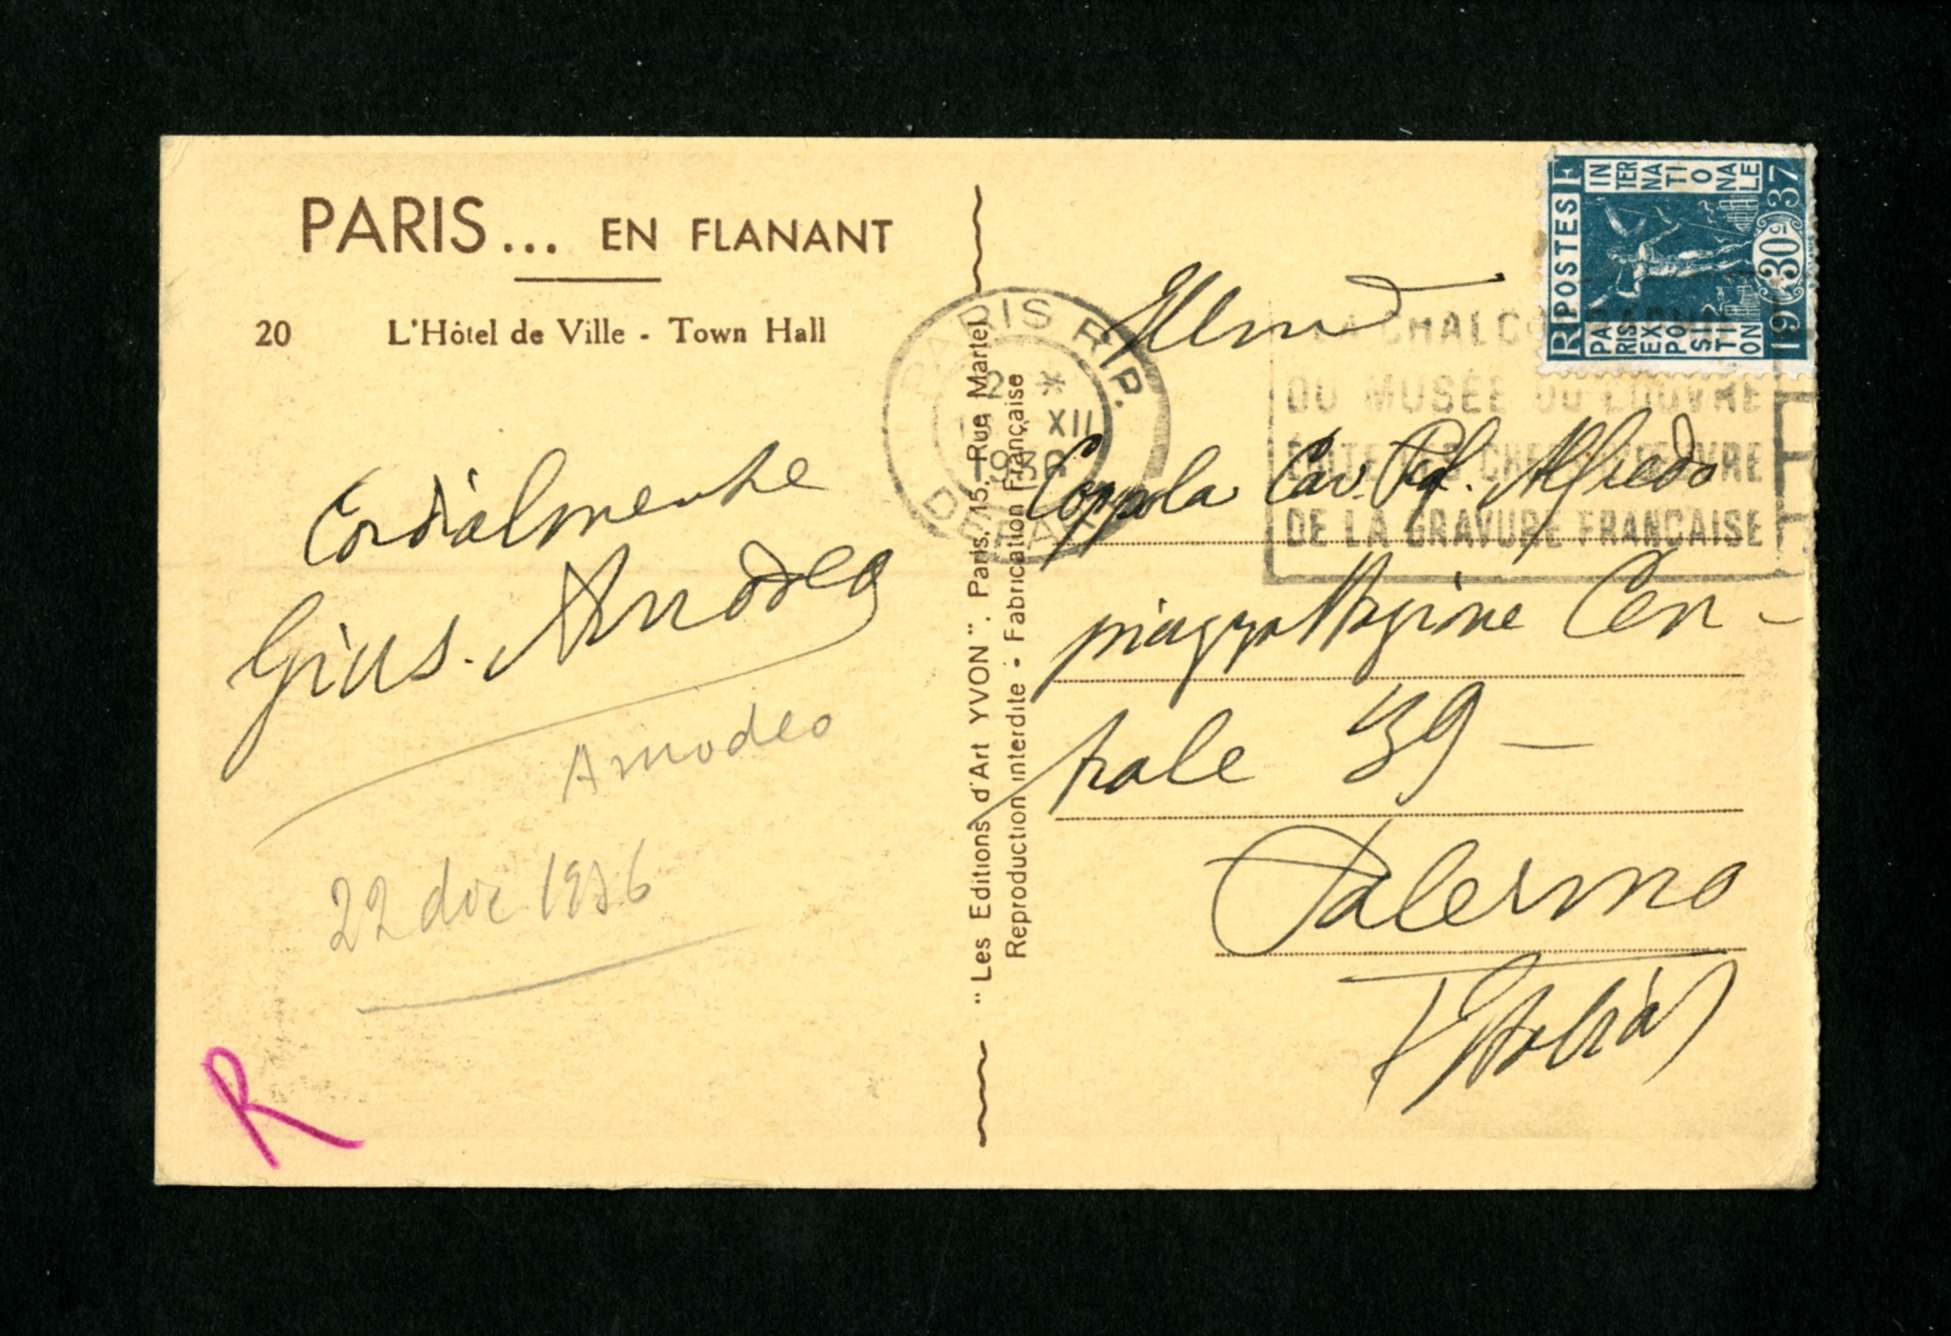 PARIS... EN FLANANT
20 L'Hôtel de Ville - Town Hall
Cordialmente
Gius. Amodeo
Amodeo
22 dic 1936
R
" Les Editions d'Art YVON ". Paris, 15, Rue Martel
Reproduction interdite - Fabrication Française
PARIS R.P.
XII
1936
DÉPART
LA CHALCOGRAPHIE
DU MUSÉE DU LOUVRE
ÉDITE LES CHEFS D'ŒUVRE
DE LA GRAVURE FRANÇAISE
R POSTES F
PARIS EXPOSITION INTERNATIONALE
1937
30c
Coppola Cav. Alfredo
piazza Stazione Cen-
trale 39 —
Palermo
Italia